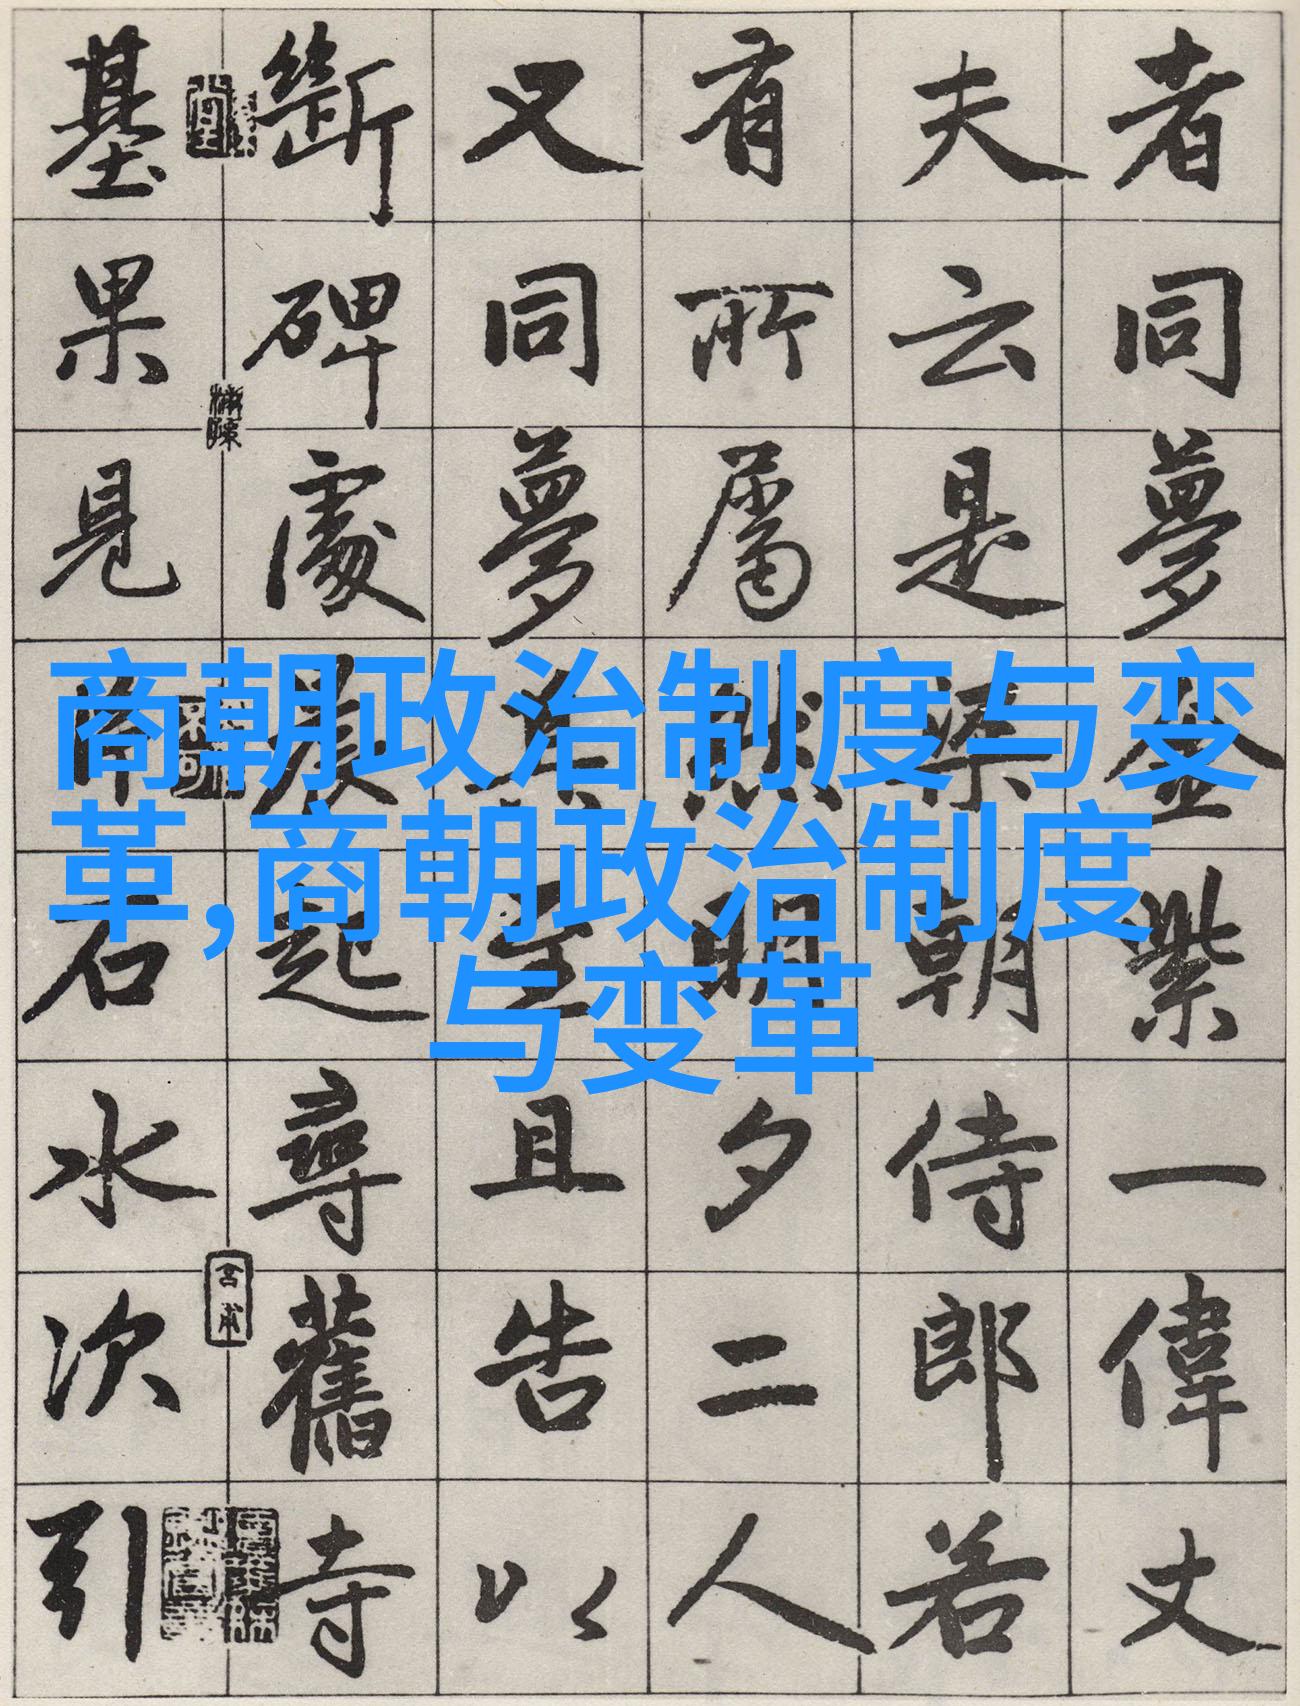 者同夢金紫一偉丈
夫云是梁朝侍郎若
有所屬然明夕二人
又同夢至且告以
斷碑處晨起尋舊寺
基果見石水次引
商朝政治制度与变
革,商朝政治制度
与变革